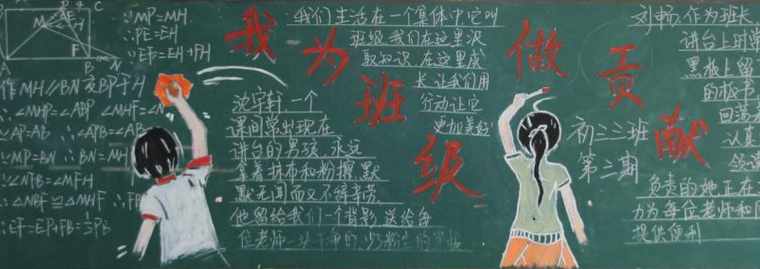 ∵MP=MH
∵PE=EH
∴EP=EH+PH
作MH∥BN交BP于H
∴∠MHP=∠ABP ∠MHF=
∵AP=AB ∴∠APB=∠AB
∵MP=BN ∴BN=MH
∴∠NFB=∠MFH
∴△NBF≌△MHF
∴EF=EP+FB=½PB
我为班级做贡献
我们生活在一个集体中它叫
班级 我们在这里汲
取知识 在这里成
长 让我们用
行动让它
更加美好
沈宇轩 一个
课间常出现在
讲台的男孩 永远
拿着抹布和粉擦 默
默无闻而又不辞辛劳
他留给我们一个背影 送给每
位老师一块干净的
初二三班
第三期
刘畅 作为班长
讲台上时常
黑板上留
的板书
回荡
认真
负责的她正在
力为每位老师和同
提供便利